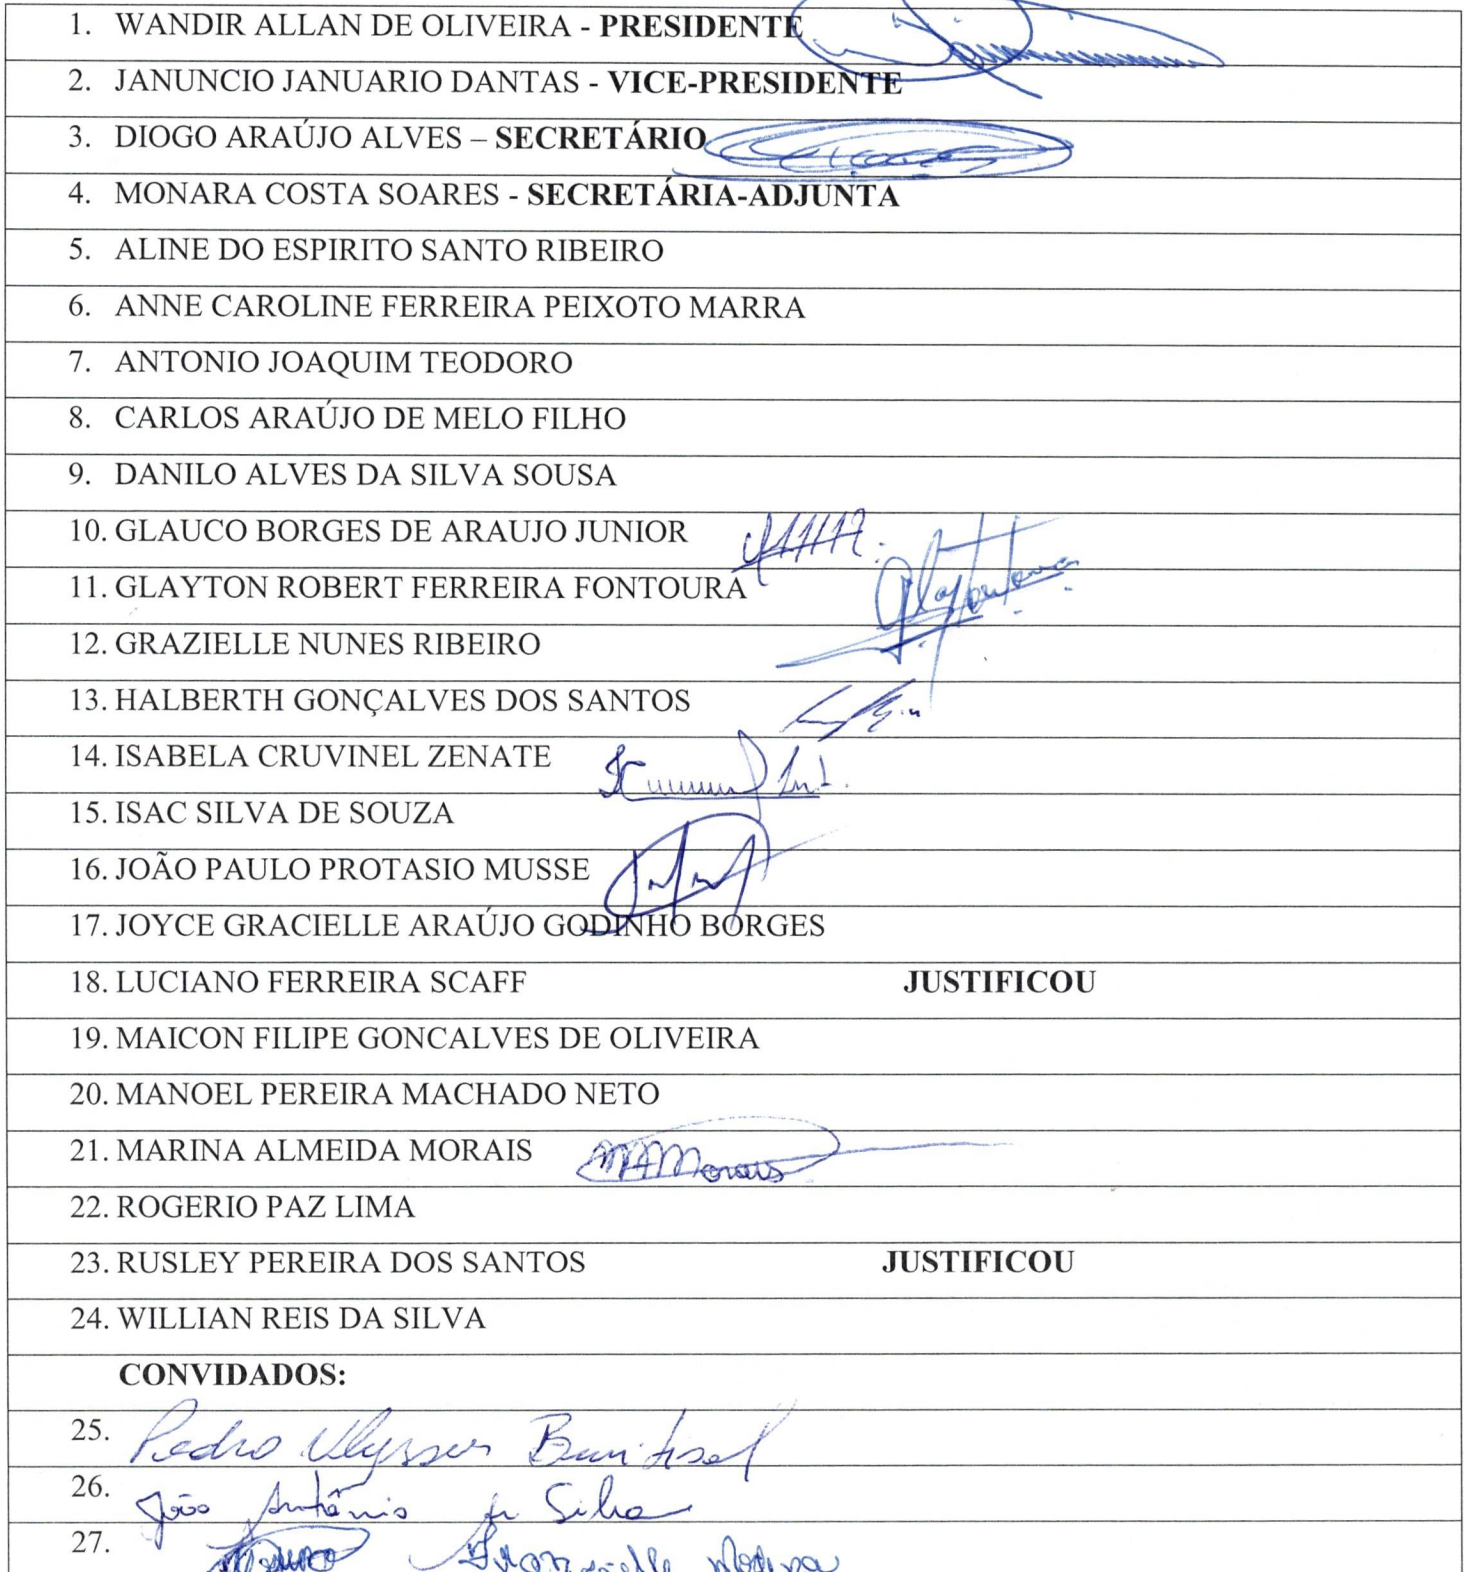 1. WANDIR ALLAN DE OLIVEIRA - PRESIDENTE
2. JANUNCIO JANUARIO DANTAS - VICE-PRESIDENTE
3. DIOGO ARAÚJO ALVES – SECRETÁRIO
4. MONARA COSTA SOARES - SECRETÁRIA-ADJUNTA
5. ALINE DO ESPIRITO SANTO RIBEIRO
6. ANNE CAROLINE FERREIRA PEIXOTO MARRA
7. ANTONIO JOAQUIM TEODORO
8. CARLOS ARAÚJO DE MELO FILHO
9. DANILO ALVES DA SILVA SOUSA
10. GLAUCO BORGES DE ARAUJO JUNIOR
11. GLAYTON ROBERT FERREIRA FONTOURA
12. GRAZIELLE NUNES RIBEIRO
13. HALBERTH GONÇALVES DOS SANTOS
14. ISABELA CRUVINEL ZENATE
15. ISAC SILVA DE SOUZA
16. JOÃO PAULO PROTASIO MUSSE
17. JOYCE GRACIELLE ARAÚJO GODINHO BORGES
18. LUCIANO FERREIRA SCAFF JUSTIFICOU
19. MAICON FILIPE GONCALVES DE OLIVEIRA
20. MANOEL PEREIRA MACHADO NETO
21. MARINA ALMEIDA MORAIS MAMorais
22. ROGERIO PAZ LIMA
23. RUSLEY PEREIRA DOS SANTOS JUSTIFICOU
24. WILLIAN REIS DA SILVA
CONVIDADOS:
25. Pedro Ulysses
26. João Antônio Silva
27.